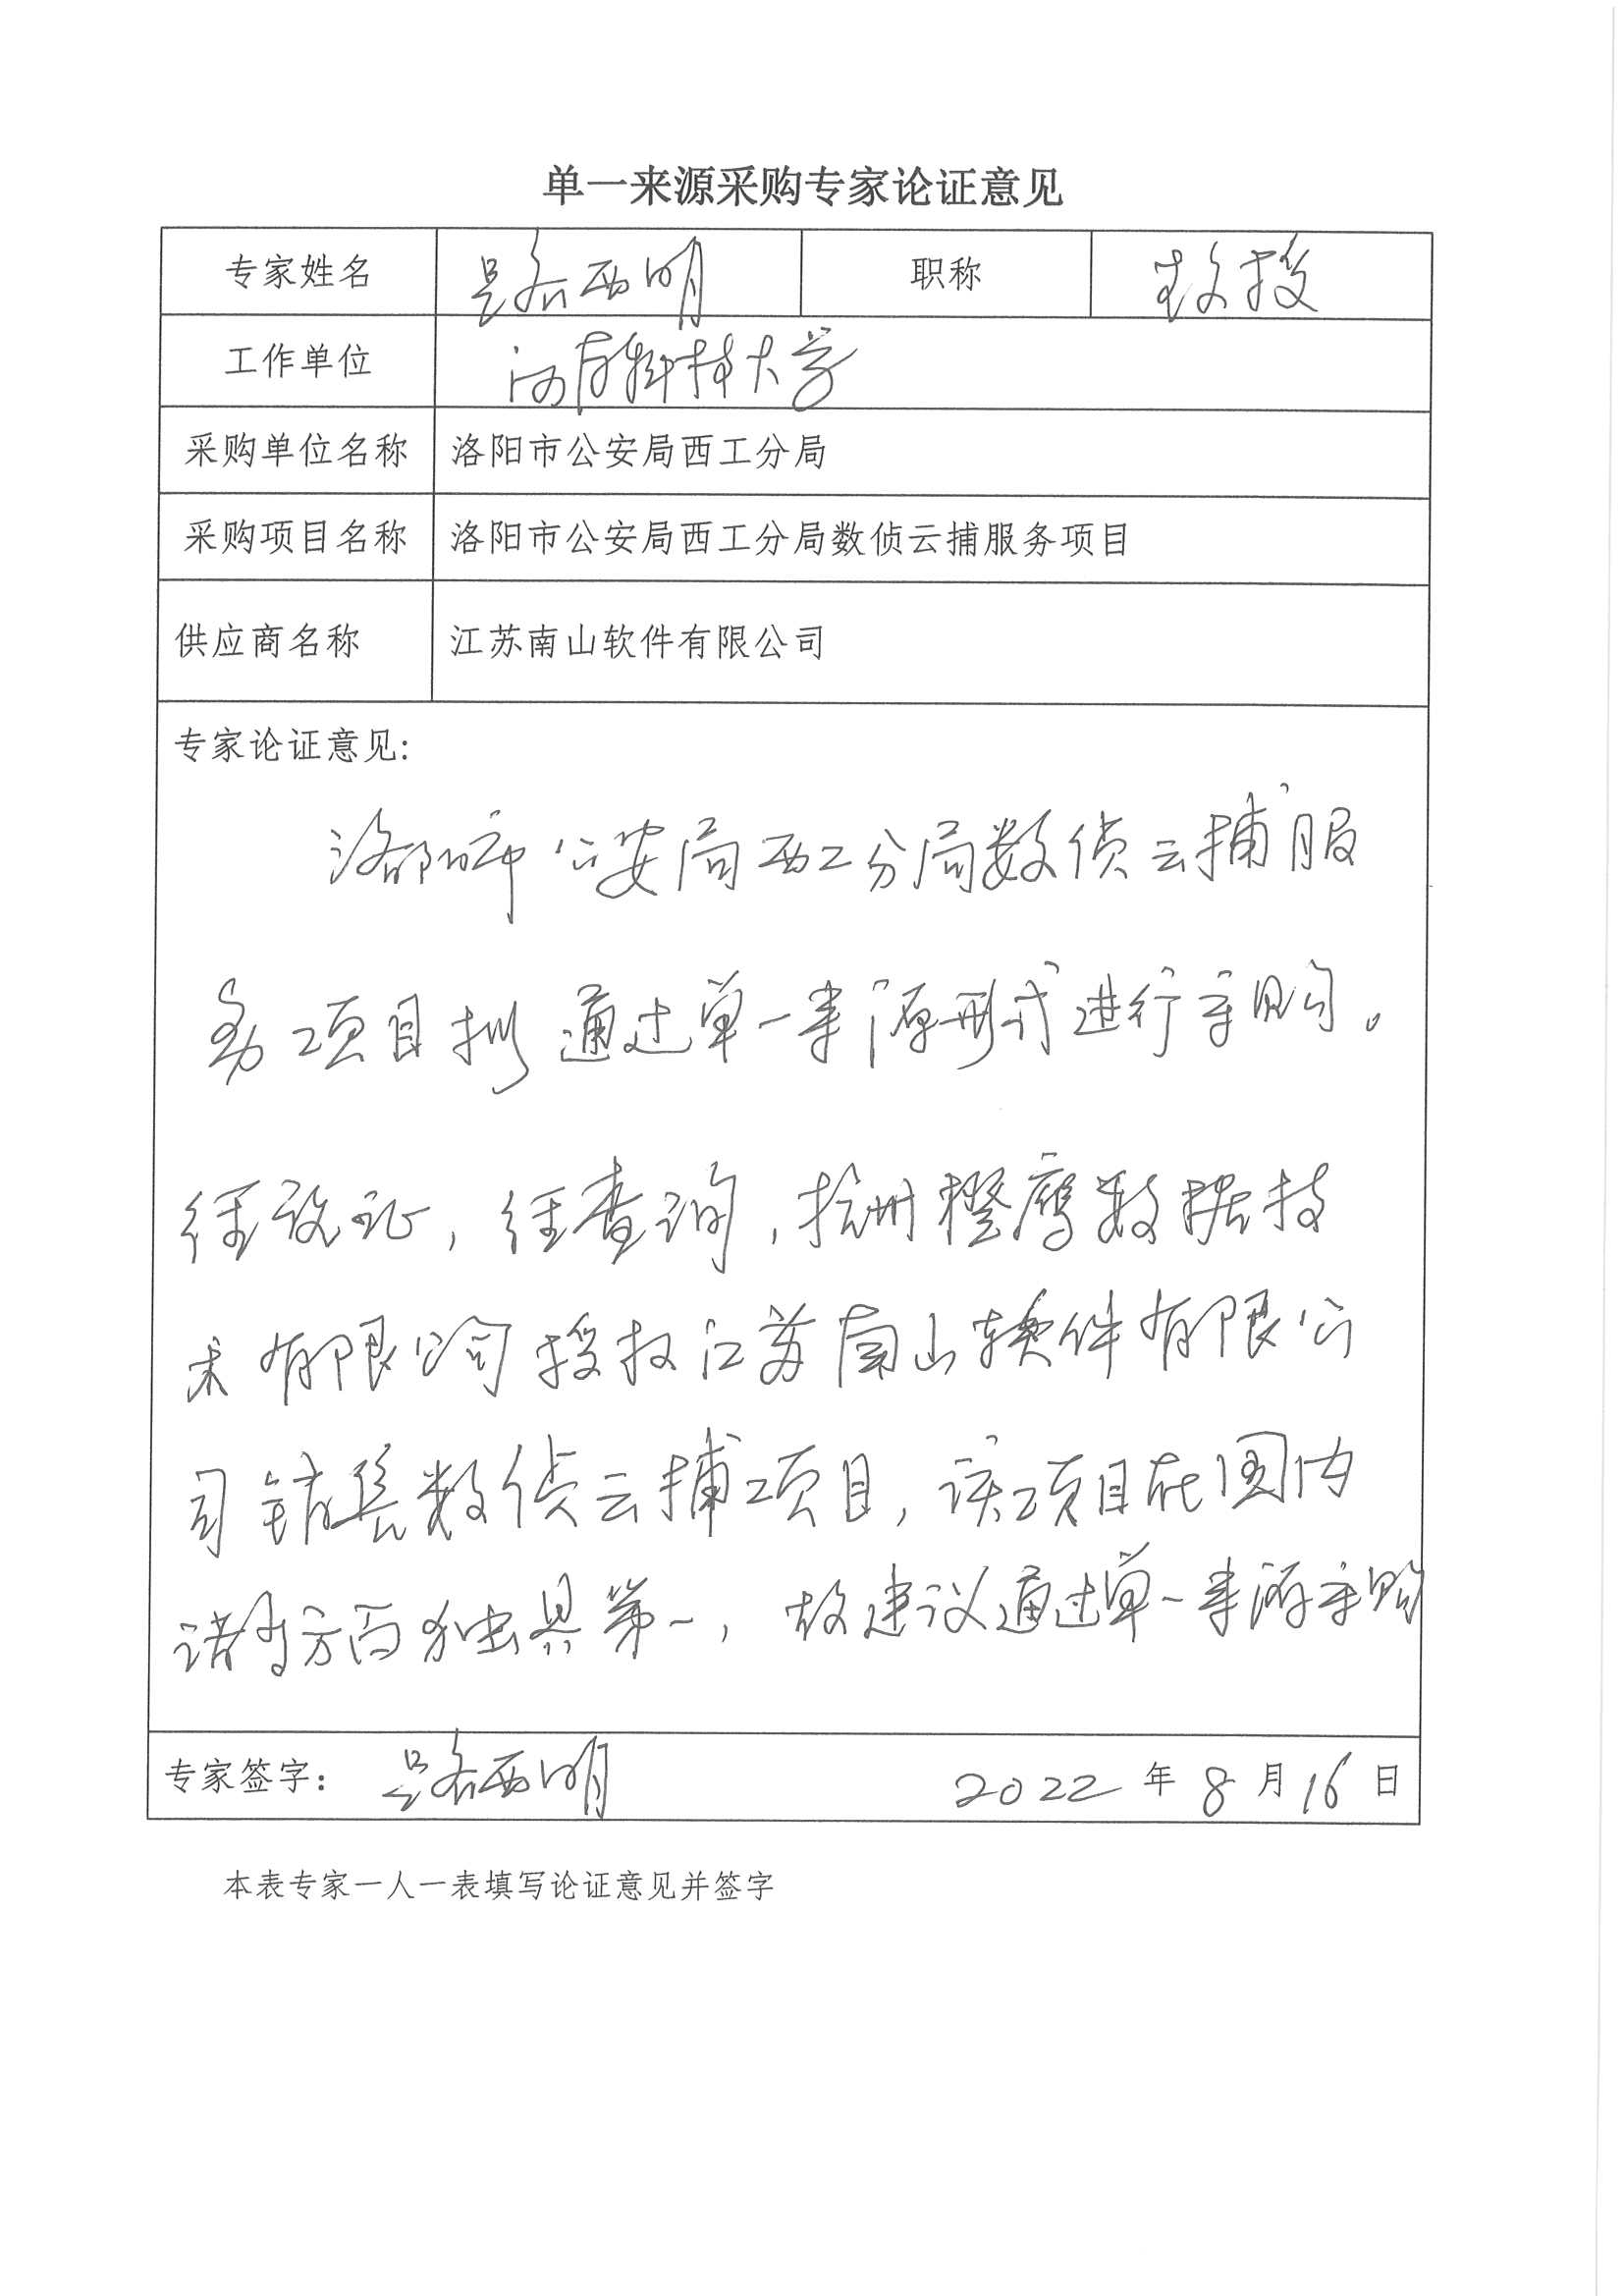 单一来源采购专家论证意见
专家姓名 路西明 职称 教授
工作单位 河南科技大学
采购单位名称 洛阳市公安局西工分局
采购项目名称 洛阳市公安局西工分局数侦云捕服务项目
供应商名称 江苏南山软件有限公司
专家论证意见:
洛阳市公安局西工分局数侦云捕服
务项目拟通过单一来源形式进行采购。
经论证，经查询，杭州橙鹰数据技
术有限公司授权江苏南山软件有限公
司销售数侦云捕项目，该项目在国内
诸多方面独具第一，故建议通过单一来源采购
专家签字： 路西明 2022 年 8 月 16 日
本表专家一人一表填写论证意见并签字